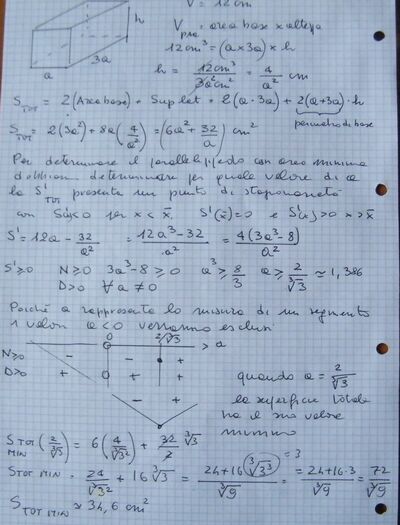 V = 12 cm
h
a
3a
V = area base x altezza
pra
12 cm³ = (a×3a) × h
h = 12cm³ / 3a²cm² = 4 / a² cm
S TOT = 2(Area base) + Sup lat = 2(a·3a) + 2(a+3a)·h
perimetro di base
S TOT = 2(3a²) + 8a(4/a²) = (6a² + 32/a) cm²
Per determinare il parallelepipedo con area minima
dobbiamo determinare per quale valore di a
la S TOT presenta un punto di stazionarietà
con S'(x)<0 per x < x̄, S'(x̄)=0 e S'(x)>0 x>x̄
S' = 12a - 32/a² = 12a³-32 / a² = 4(3a³-8) / a²
S'≥0 N≥0 3a³-8 ≥ 0 a³ ≥ 8/3 a ≥ 2/∛3 ≃ 1,386
D>0 ∀ a ≠ 0
Poiché a rappresenta la misura di un segmento
i valori a<0 verranno esclusi
0 2/∛3 a
N≥0 - - +
D>0 + 0 + +
- - +
quando a = 2/∛3
la superficie totale
ha il suo valore
minimo
S TOT MIN (2/∛3) = 6(4/∛3²) + 32/2 ∛3
S TOT MIN = 24/∛3² + 16∛3 = 24+16∛3³ / ∛9 = 24+16·3 / ∛9 = 72/∛9
= 3
S TOT MIN ≃ 34,6 cm²